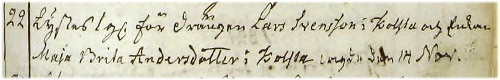 22 Lystes 1 g. för Drängen Lars Svensson i Holsta och Enkan
Maja Brita Andersdotter i Holsta den 14 Nov.